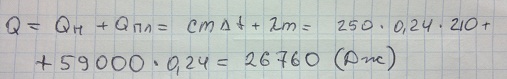 Q = Qн + Qпл = cmΔt + λm = 250 · 0,24 · 210 +
+ 59000 · 0,24 = 26760 (Дж)